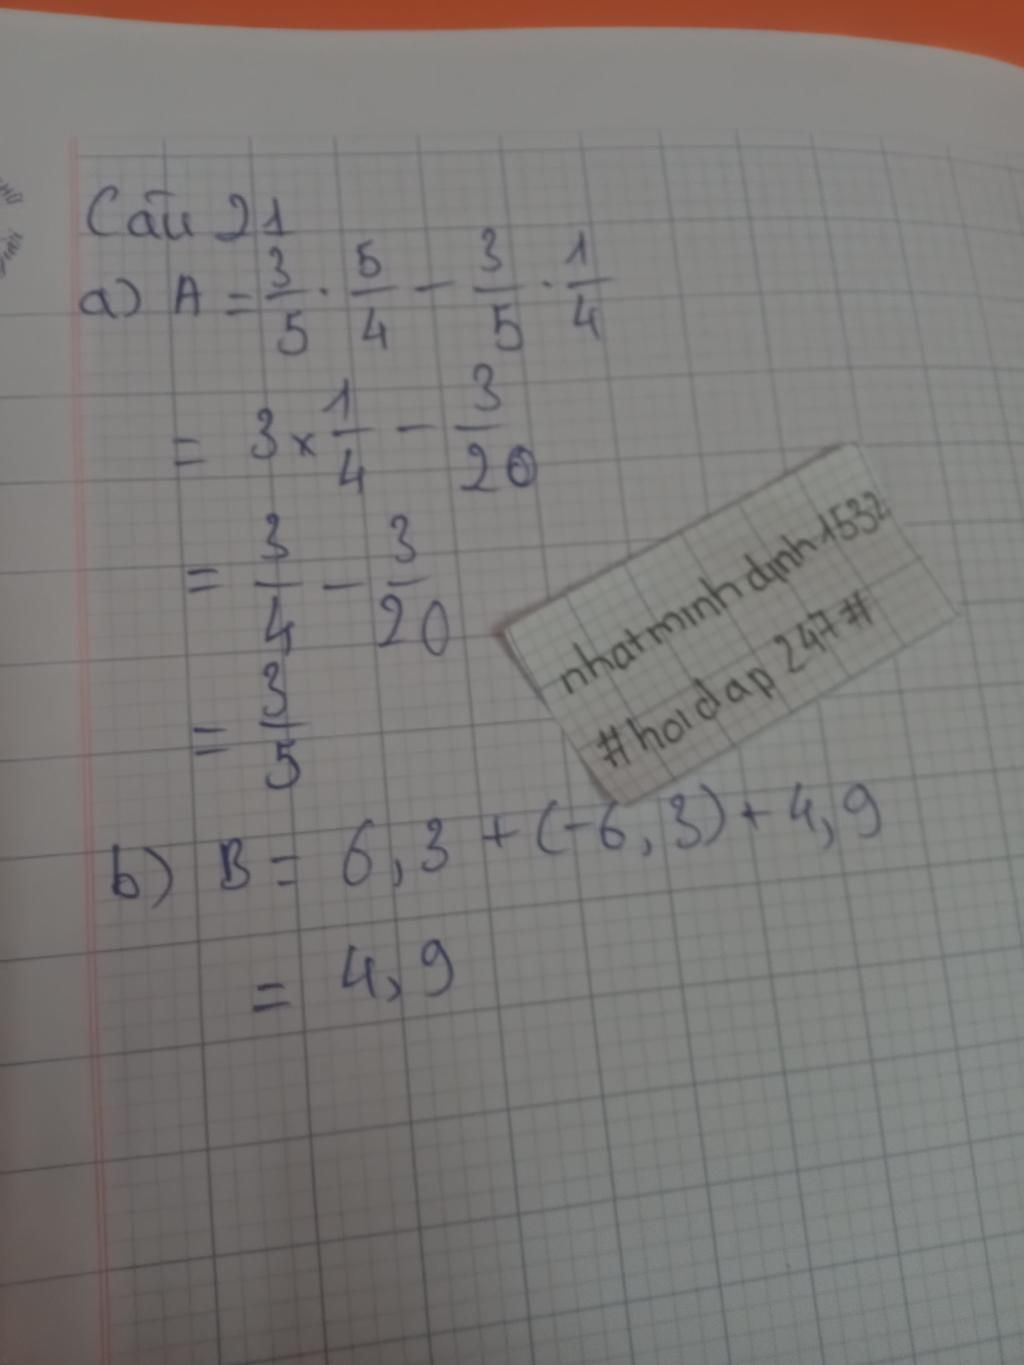 Câu 21
a) A = 3/5 . 5/4 - 3/5 . 1/4
= 3 x 1/4 - 3/20
= 3/4 - 3/20
= 3/5
nhatminhdinh1532
#hoidap 247#
b) B = 6,3 + (-6,3) + 4,9
= 4,9